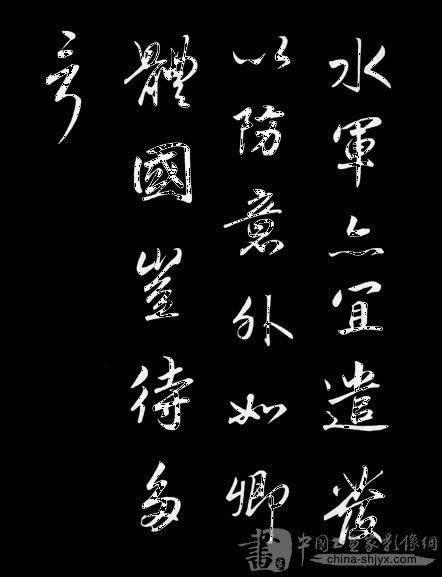 水軍亦宜遣發
以防意外如卿
體國豈待多
言
書 中国书画家影像网
china-shjyx.com